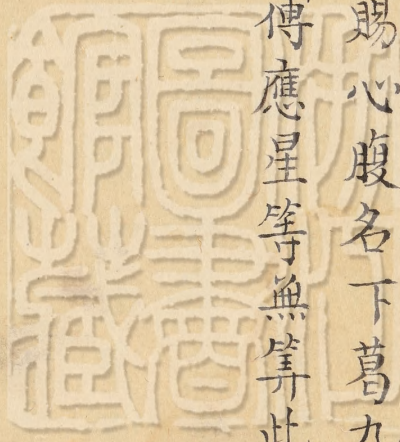 賜心腹名下葛九
傅應星等無筭此
圖書
館藏